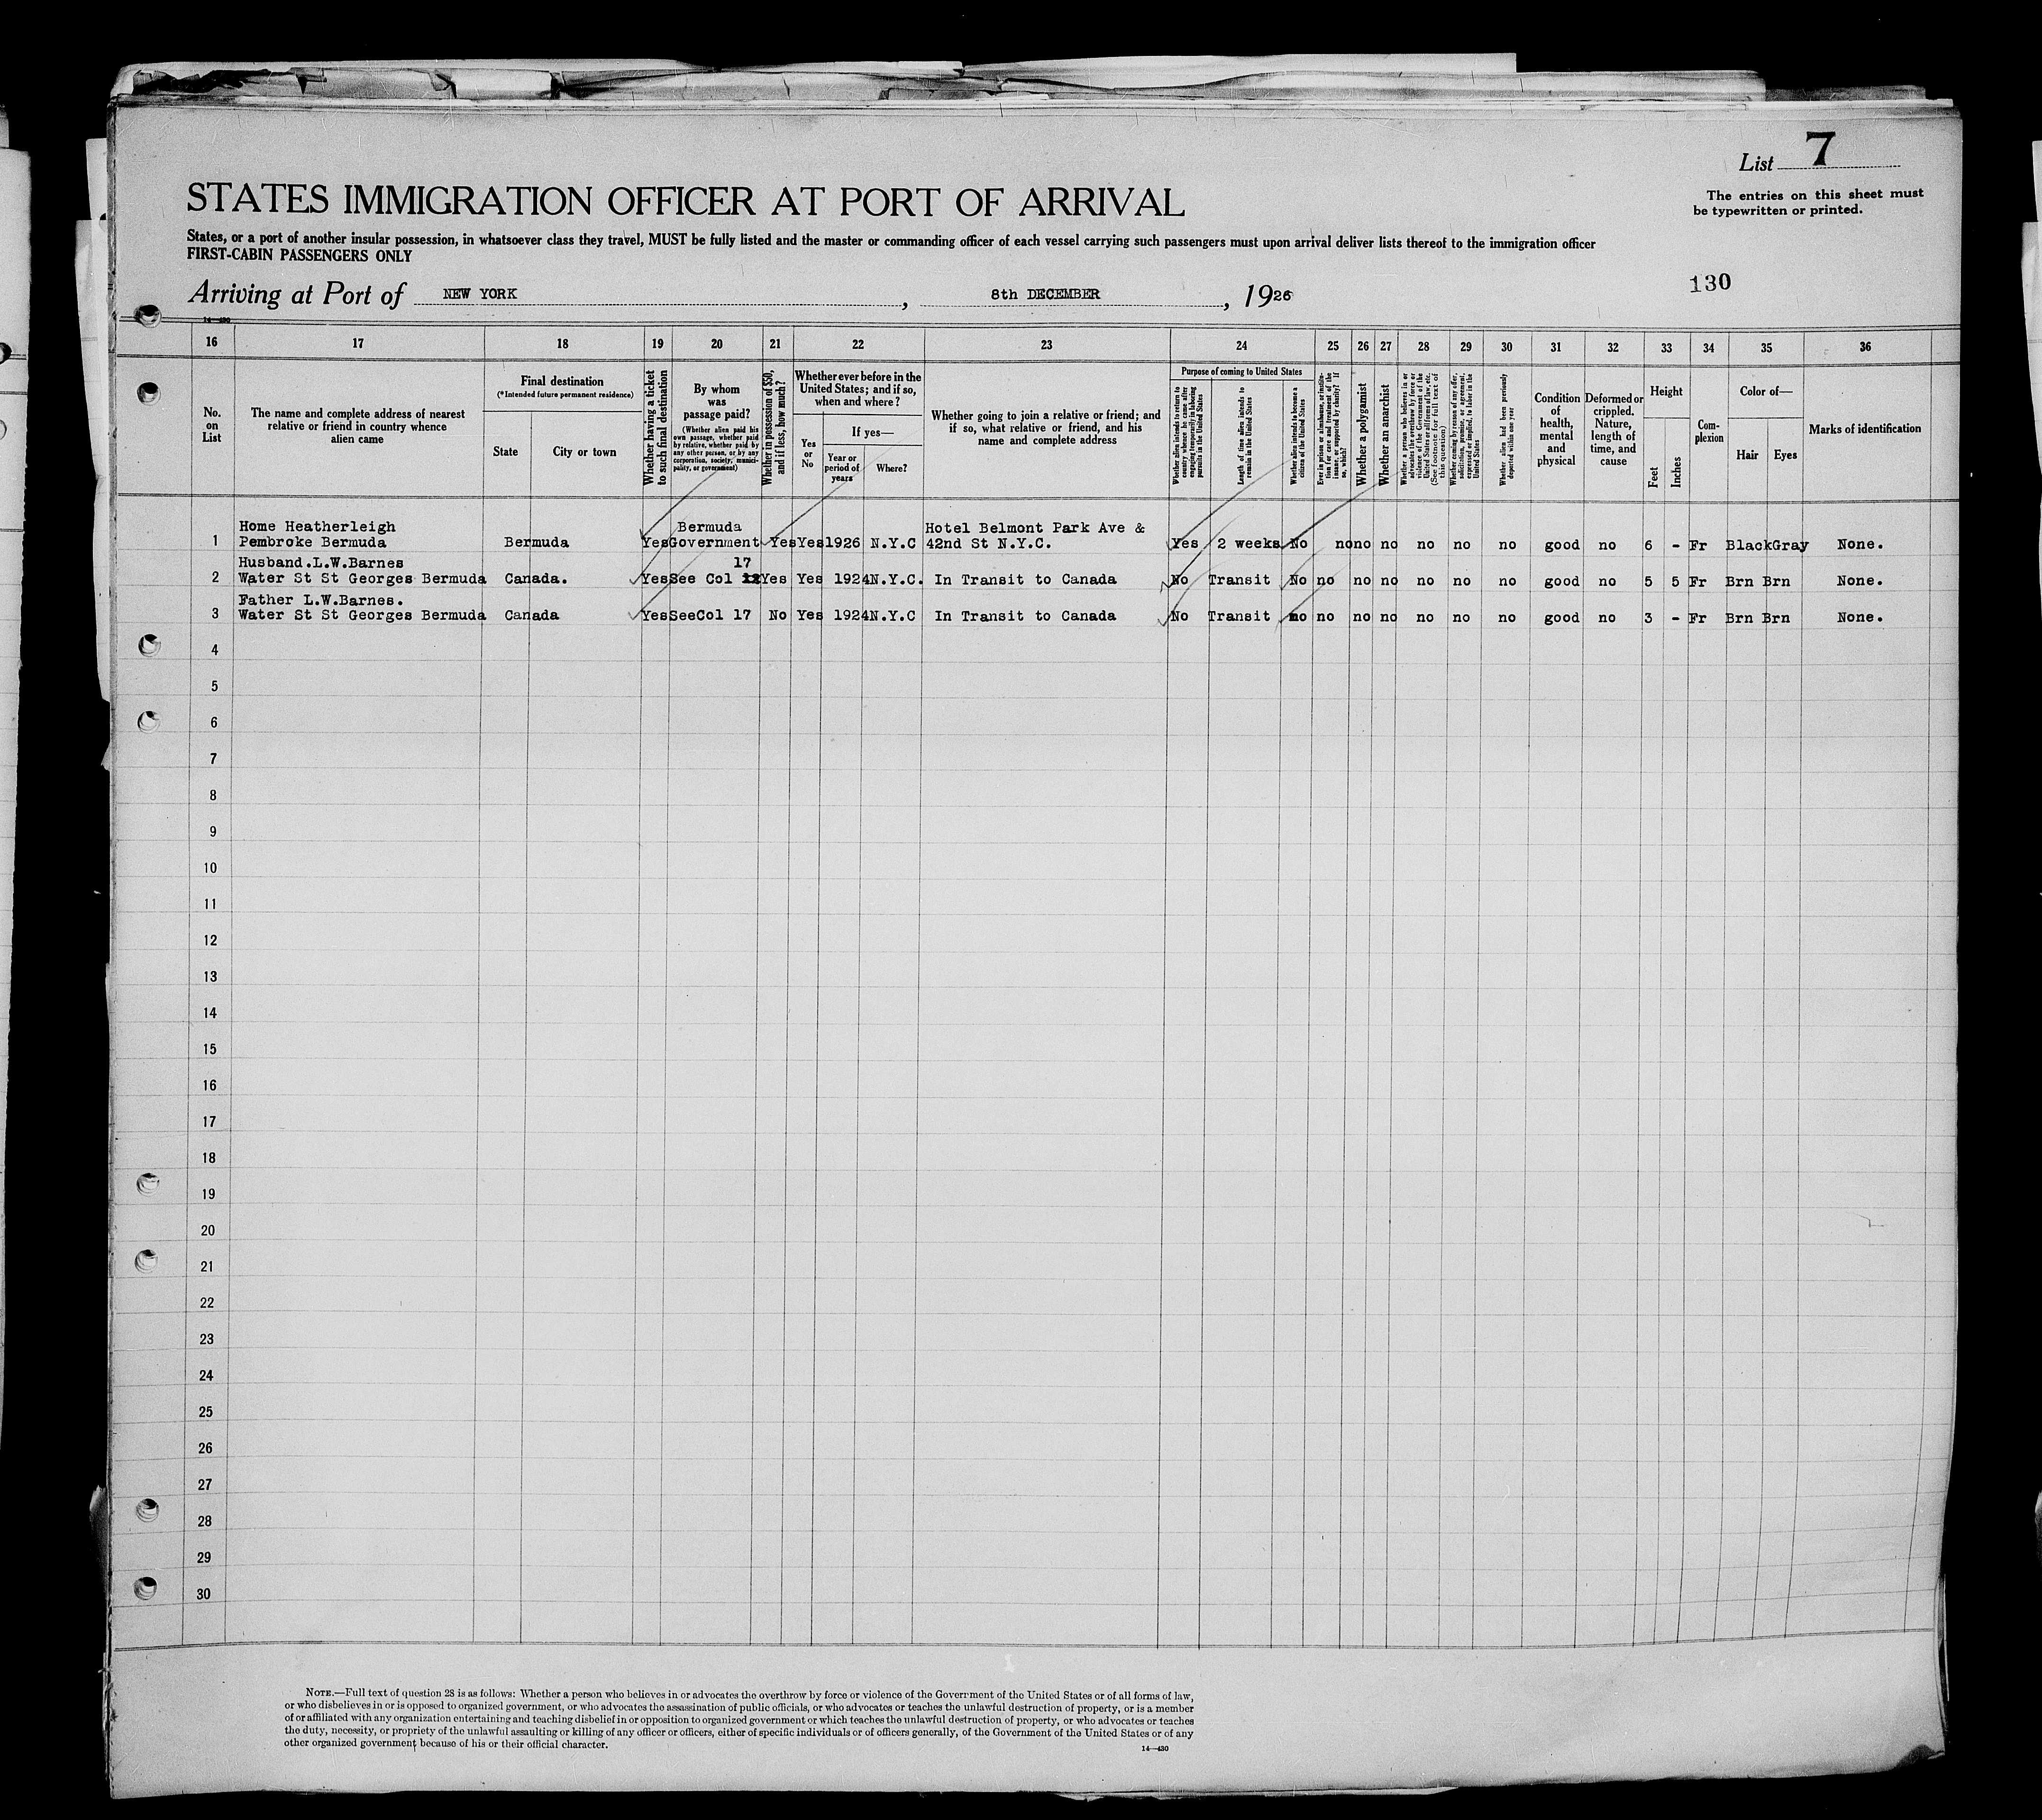 List 7
STATES IMMIGRATION OFFICER AT PORT OF ARRIVAL
The entries on this sheet must
be typewritten or printed.
States, or a port of another insular possession, in whatsoever class they travel, MUST be fully listed and the master or commanding officer of each vessel carrying such passengers must upon arrival deliver lists thereof to the immigration officer
FIRST-CABIN PASSENGERS ONLY
130
Arriving at Port of NEW YORK, 8th DECEMBER, 1926
14—430
16 17 18 19 20 21 22 23 24 25 26 27 28 29 30 31 32 33 34 35 36
No. on List
The name and complete address of nearest relative or friend in country whence alien came
Final destination
(*Intended future permanent residence)
State
City or town
Whether having a ticket to such final destination
By whom was passage paid?
(Whether alien paid his own passage, whether paid by relative, whether paid by any other person, or by any corporation, society, municipality, or government)
Whether in possession of $50, and if less, how much?
Whether ever before in the United States; and if so, when and where?
Yes or No
If yes—
Year or period of years
Where?
Whether going to join a relative or friend; and if so, what relative or friend, and his name and complete address
Purpose of coming to United States
Whether alien intends to return to country whence he came after engaging temporarily in laboring pursuits in the United States
Length of time alien intends to remain in the United States
Whether alien intends to become a citizen of the United States
Ever in prison or almshouse, or institution for care and treatment of the insane, or supported by charity? If so, which?
Whether a polygamist
Whether an anarchist
Whether a person who believes in or advocates the overthrow by force or violence of the Government of the United States or all forms of law, etc. (See footnote for full text of this question)
Whether coming by reason of any offer, solicitation, promise, or agreement, expressed or implied, to labor in the United States
Whether alien had been previously deported within one year
Condition of health, mental and physical
Deformed or crippled. Nature, length of time, and cause
Height
Feet
Inches
Complexion
Color of—
Hair
Eyes
Marks of identification
Home Heatherleigh Bermuda Hotel Belmont Park Ave &
1 Pembroke Bermuda Bermuda Yes Government Yes Yes 1926 N.Y.C 42nd St N.Y.C. Yes 2 weeks No no no no no no no good no 6 - Fr Black Gray None.
Husband.L.W.Barnes 17
2 Water St St Georges Bermuda Canada. Yes See Col 12 Yes Yes 1924 N.Y.C. In Transit to Canada No Transit No no no no no no no good no 5 5 Fr Brn Brn None.
Father L.W.Barnes.
3 Water St St Georges Bermuda Canada Yes SeeCol 17 No Yes 1924 N.Y.C In Transit to Canada No Transit no no no no no no no good no 3 - Fr Brn Brn None.
4
5
6
7
8
9
10
11
12
13
14
15
16
17
18
19
20
21
22
23
24
25
26
27
28
29
30
NOTE.—Full text of question 28 is as follows: Whether a person who believes in or advocates the overthrow by force or violence of the Government of the United States or of all forms of law,
or who disbelieves in or is opposed to organized government, or who advocates the assassination of public officials, or who advocates or teaches the unlawful destruction of property, or is a member
of or affiliated with any organization entertaining and teaching disbelief in or opposition to organized government or which teaches the unlawful destruction of property, or who advocates or teaches
the duty, necessity, or propriety of the unlawful assaulting or killing of any officer or officers, either of specific individuals or of officers generally, of the Government of the United States or of any
other organized government because of his or their official character.
14—430